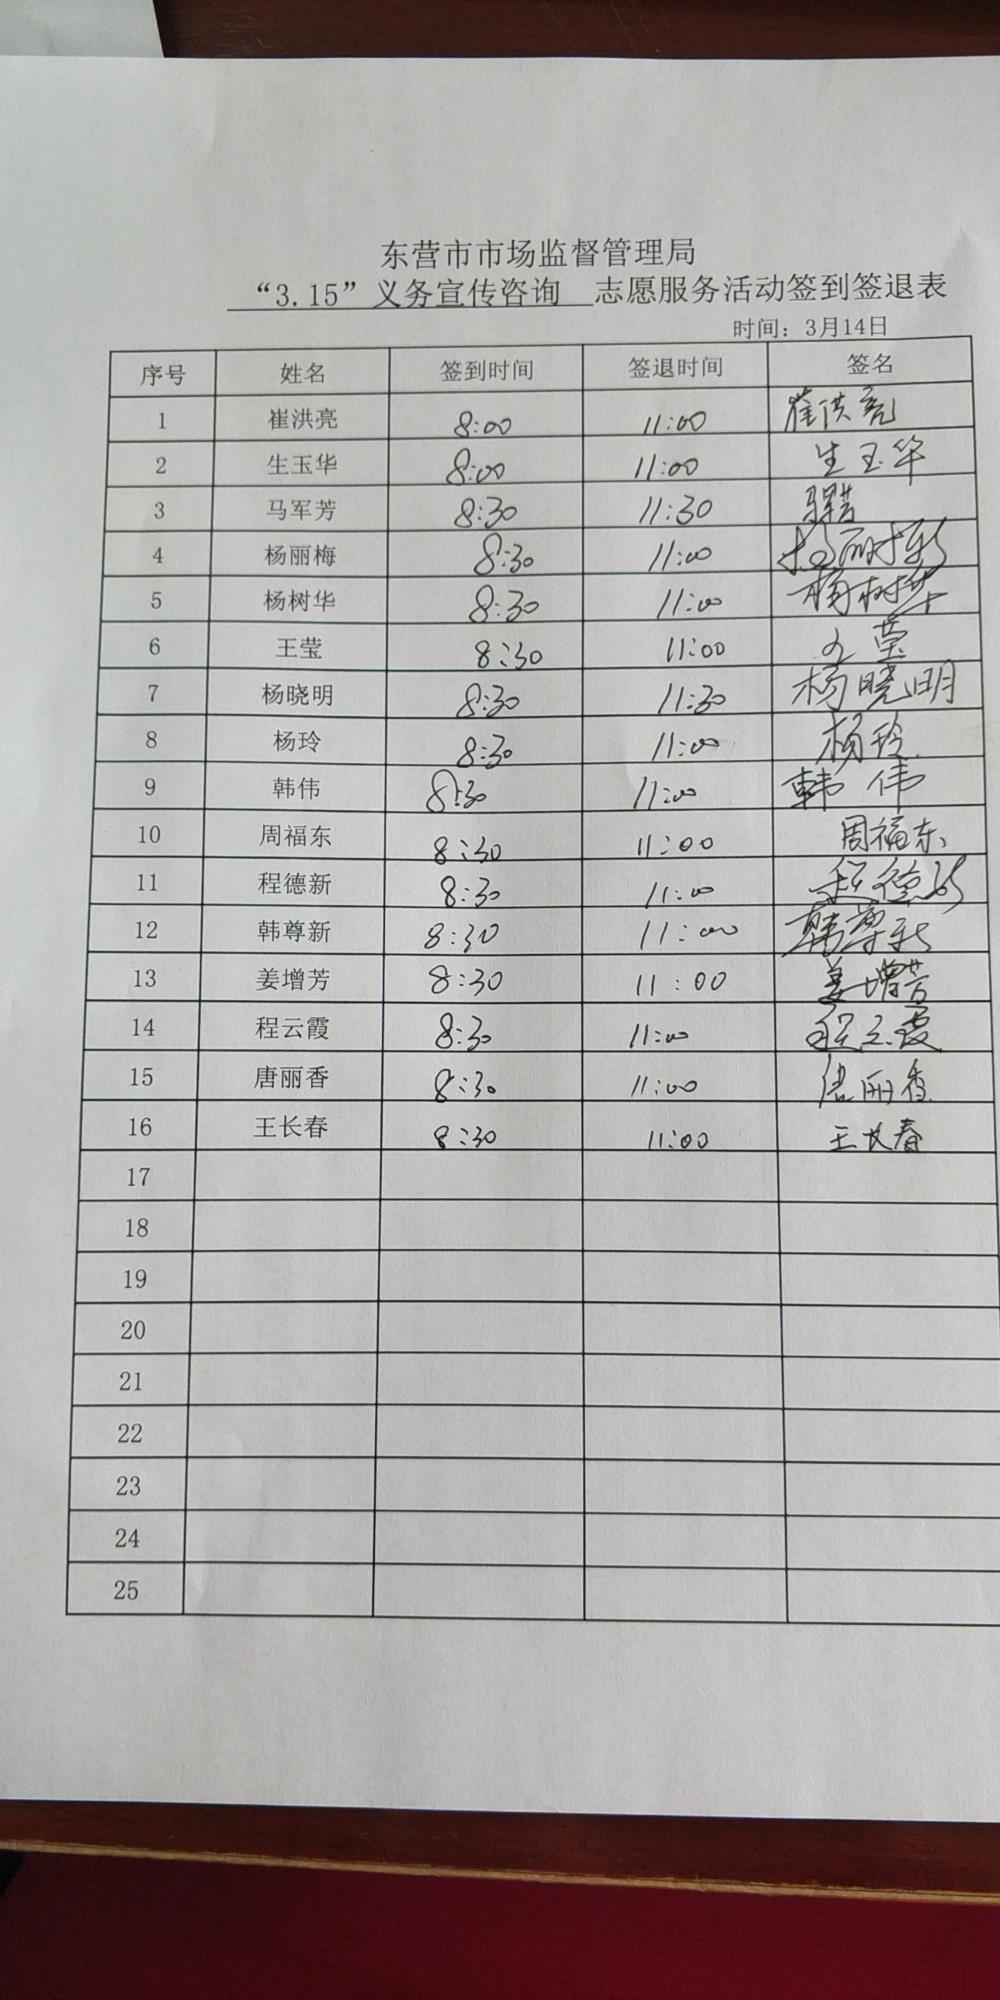 东营市市场监督管理局
“3.15”义务宣传咨询 志愿服务活动签到签退表
时间：3月14日
序号 姓名 签到时间 签退时间 签名
1 崔洪亮 8:00 11:00 崔洪亮
2 生玉华 8:00 11:00 生玉华
3 马军芳 8:30 11:30 马军芳
4 杨丽梅 8:30 11:00 杨丽梅
5 杨树华 8:30 11:00 杨树华
6 王莹 8:30 11:00 王莹
7 杨晓明 8:30 11:30 杨晓明
8 杨玲 8:30 11:00 杨玲
9 韩伟 8:30 11:00 韩伟
10 周福东 8:30 11:00 周福东
11 程德新 8:30 11:00 程德新
12 韩尊新 8:30 11:00 韩尊新
13 姜增芳 8:30 11:00 姜增芳
14 程云霞 8:30 11:00 程云霞
15 唐丽香 8:30 11:00 唐丽香
16 王长春 8:30 11:00 王长春
17
18
19
20
21
22
23
24
25